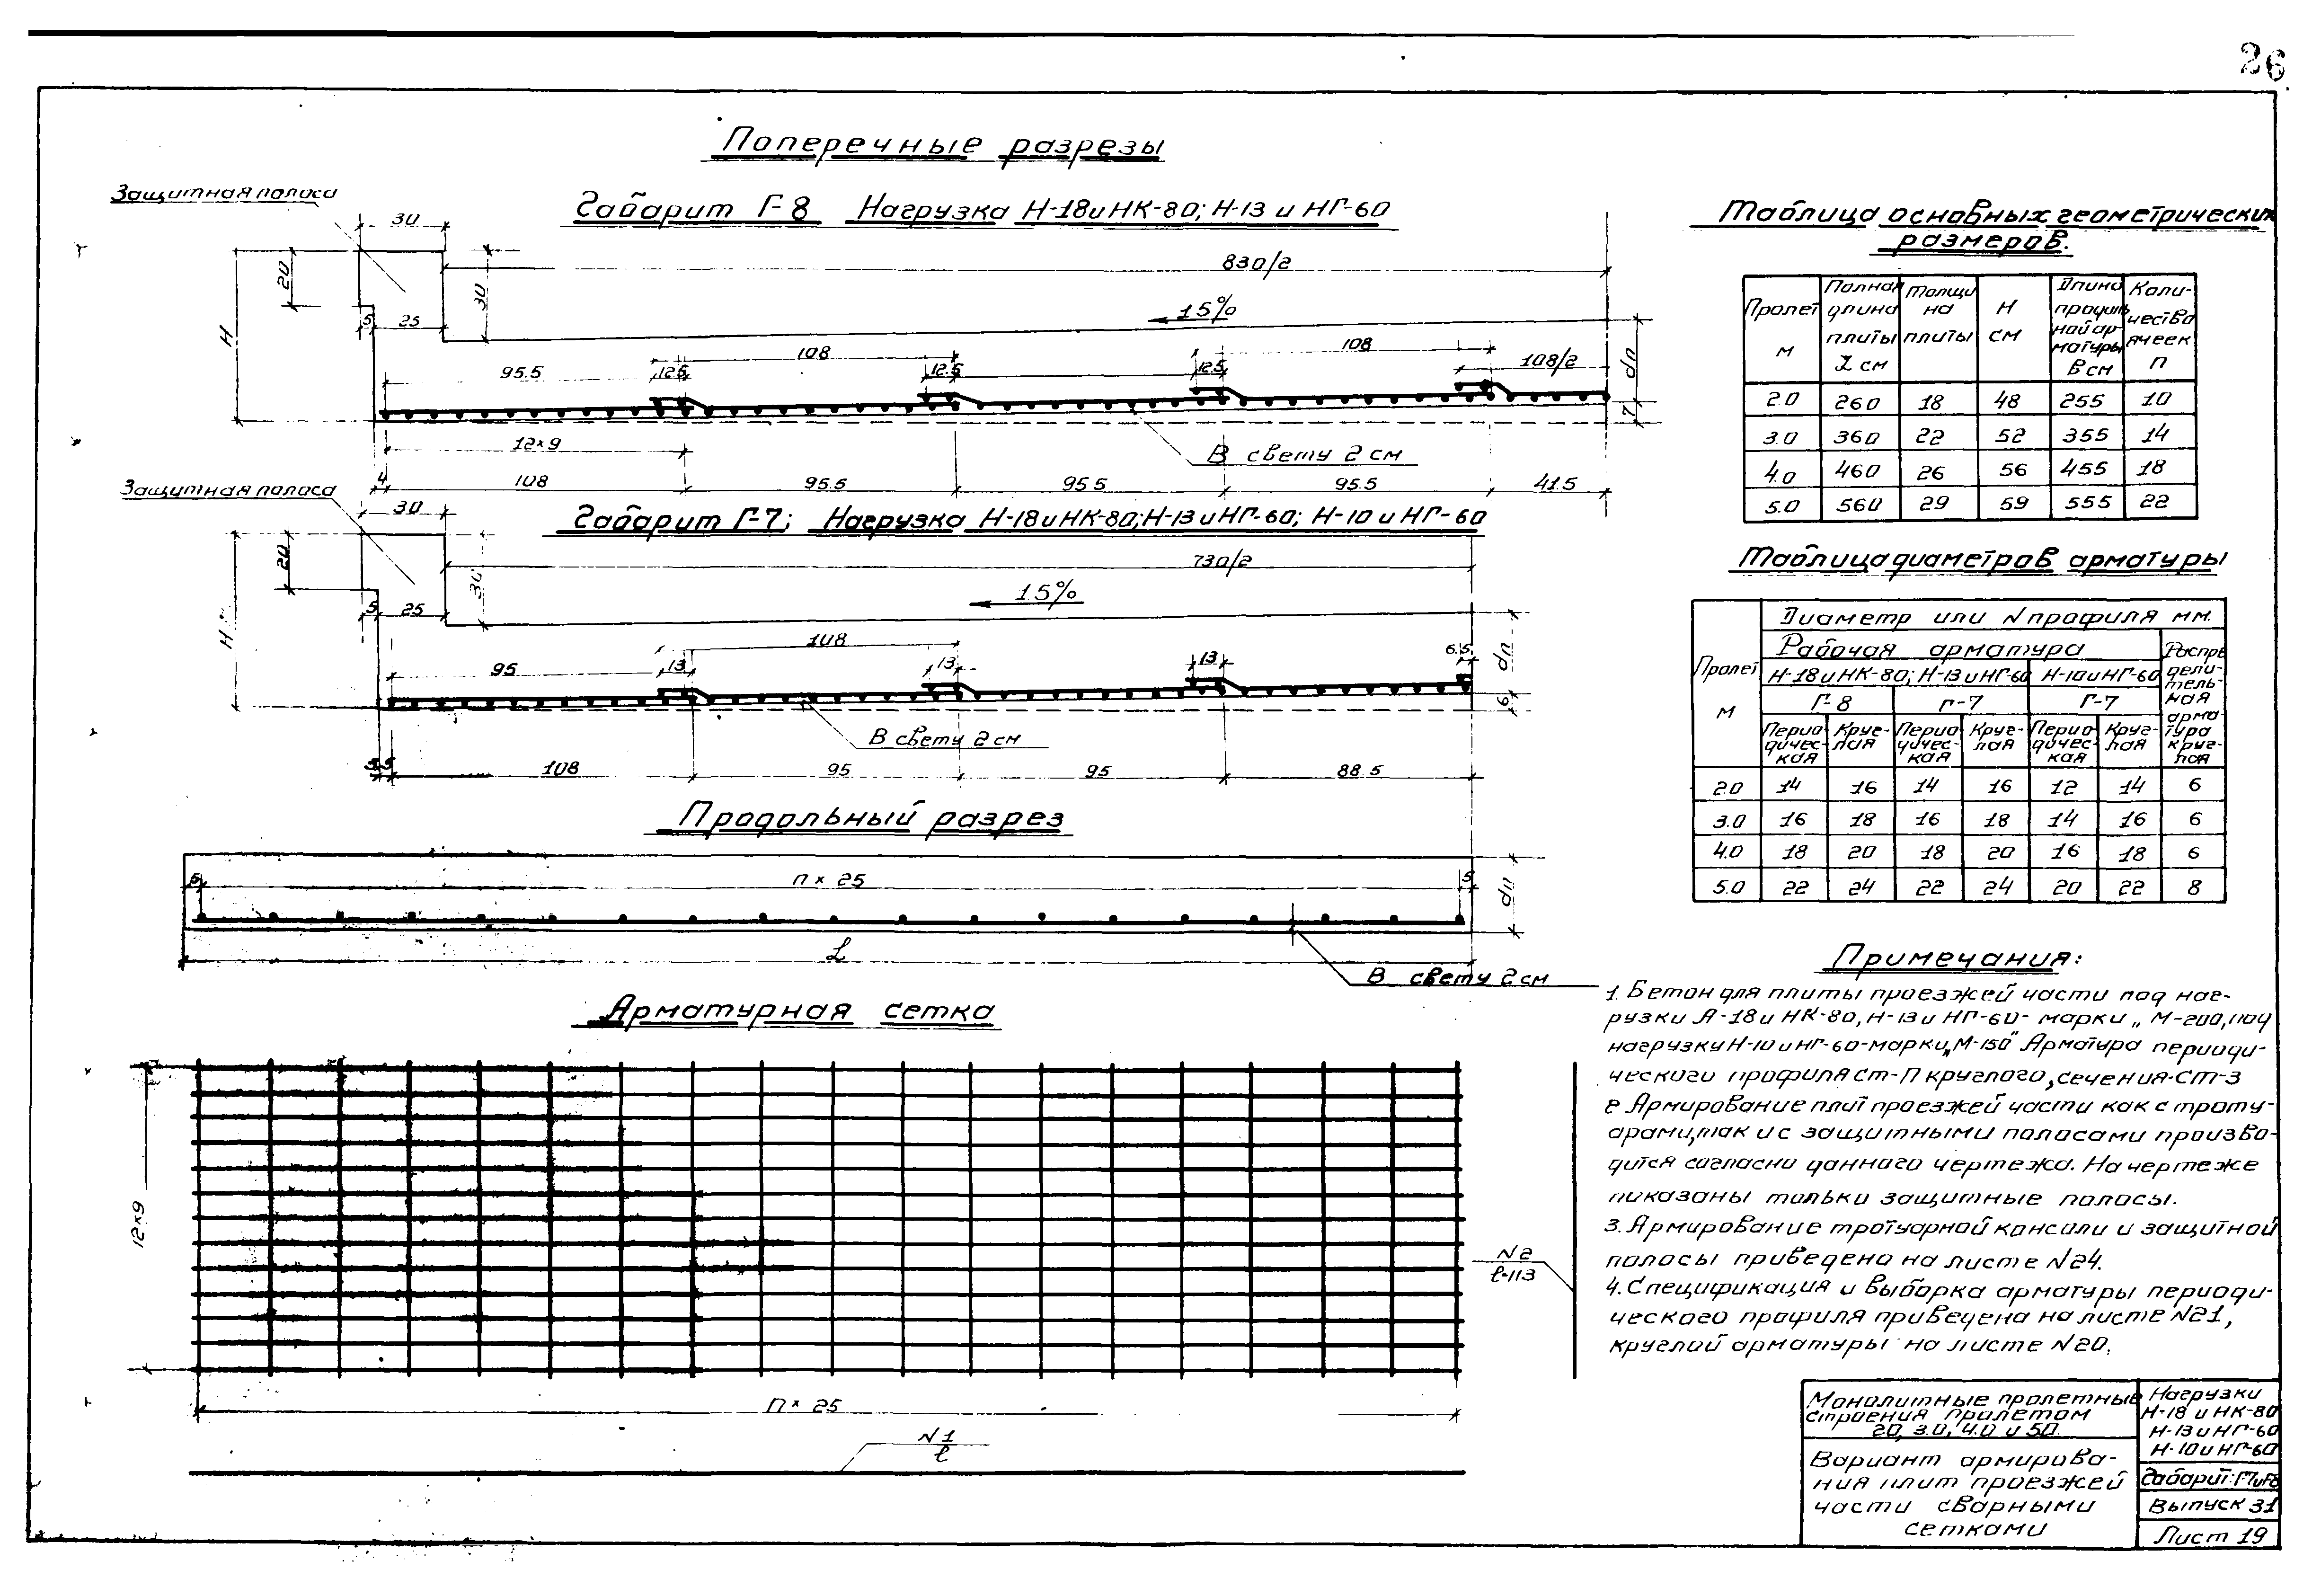 26
Поперечные разрезы
Габарит Г-8 Нагрузка Н-18 и НК-80; Н-13 и НГ-60
Защитная полоса
30
20
H
5
25
30
830/2
1.5%
95.5
12.5
108
12.5
12.5
108
108/2
dп
7
12×9
В свету 2 см
4
108
95.5
95.5
95.5
41.5
Габарит Г-7; Нагрузка Н-18 и НК-80; Н-13 и НГ-60; Н-10 и НГ-60
Защитная полоса
30
20
H
5
25
30
730/2
1.5%
95
13
108
13
13
6.5
dп
6
В свету 2 см
5.5
108
95
95
88.5
Продольный разрез
5
п × 25
5
dп
L
В свету 2 см
Арматурная сетка
12×9
N2
ℓ=113
п × 25
N1
ℓ
Таблица основных геометрических
размеров.
Пролет м
Полная длина плиты L см
Толщина плиты
Н см
Длина продольной арматуры В см
Количество ячеек п
2.0 260 18 48 255 10
3.0 360 22 52 355 14
4.0 460 26 56 455 18
5.0 560 29 59 555 22
Таблица диаметров арматуры
Пролет м
Диаметр или N профиля мм.
Рабочая арматура
Распределительная арматура круглая
Н-18 и НК-80; Н-13 и НГ-60 Н-10 и НГ-60
Г-8 Г-7 Г-7
Периодическая Круглая Периодическая Круглая Периодическая Круглая
2.0 14 16 14 16 12 14 6
3.0 16 18 16 18 14 16 6
4.0 18 20 18 20 16 18 6
5.0 22 24 22 24 20 22 8
Примечания:
1. Бетон для плиты проезжей части под наг-
рузки Н-18 и НК-80, Н-13 и НГ-60- марки „М-200, под
нагрузку Н-10 и НГ-60-марки „М-150" Арматура периоди-
ческого профиля Ст-П круглого, сечения-Ст-3
2 Армирование плит проезжей части как с троту-
арами, так и с защитными полосами произво-
дится согласно данного чертежа. На чертеже
показаны только защитные полосы.
3. Армирование тротуарной консоли и защитной
полосы приведено на листе N24.
4. Спецификация и выборка арматуры периоди-
ческого профиля приведена на листе N21,
круглой арматуры на листе N20.
Монолитные пролетные
строения пролетом
2.0, 3.0, 4.0 и 5.0.
Вариант армирова-
ния плит проезжей
части сварными
сетками
Нагрузки
Н-18 и НК-80
Н-13 и НГ-60
Н-10 и НГ-60
Габарит: Г-7 и Г-8
Выпуск 31
Лист 19